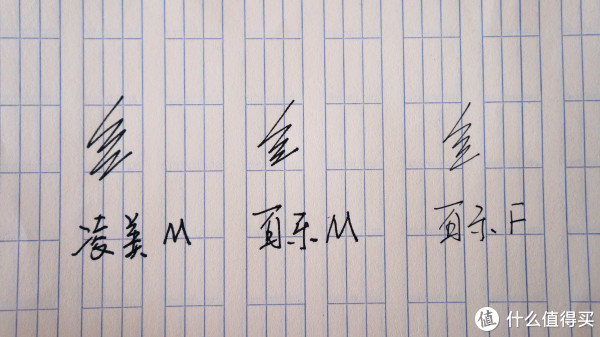 凌美 M 百乐 M 百乐 F
值 什么值得买